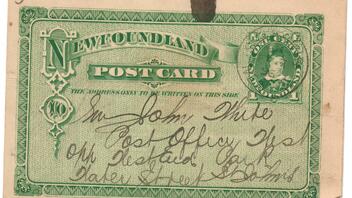 NEWFOUNDLAND
POST CARD
THE ADDRESS ONLY TO BE WRITTEN ON THIS SIDE
John White
Post Office West
Opp
Water Street St Johns